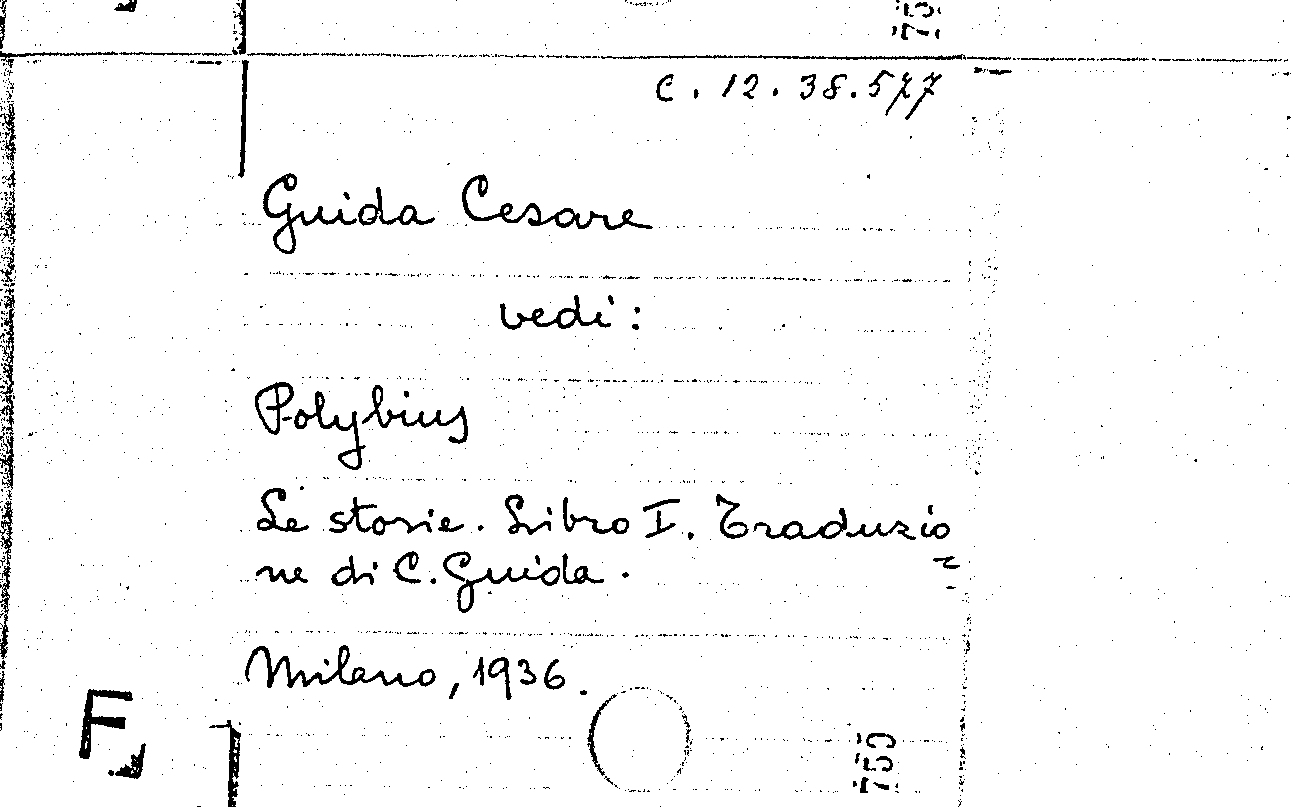 C. 12. 38. 577
Guida Cesare
vedi:
Polybius
Le storie. Libro I. Traduzio
ne di C. Guida.
Milano, 1936.
F
755